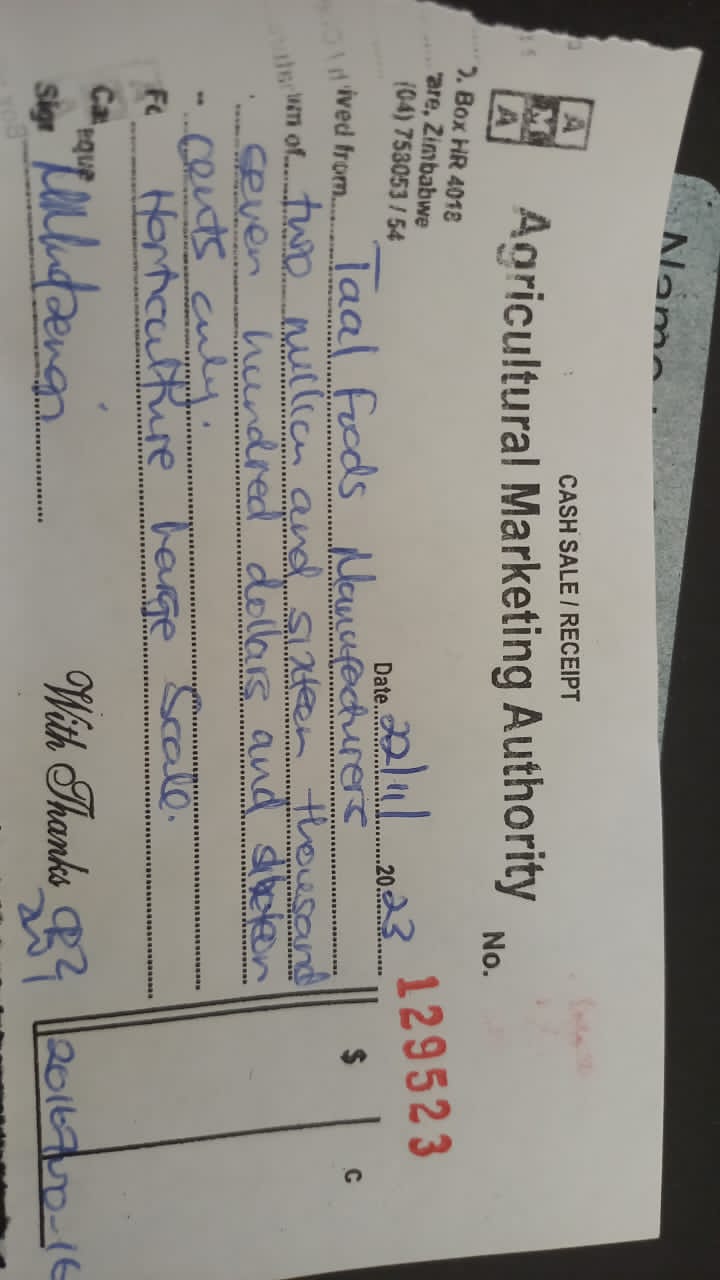 Name
CASH SALE / RECEIPT
A
A
Agricultural Marketing Authority
No. 129523
Box HR 4018
are, Zimbabwe
(04) 753053 / 54
Date 22/11/ 20 23
ived from Taal Foods Manufacturers
$ C
um of two million and sixteen thousand
seven hundred dollars and sixteen
cents only.
Fo Horticulture Large Scale.
Ca eque
Sign
With Thanks CBZ
2016700-16